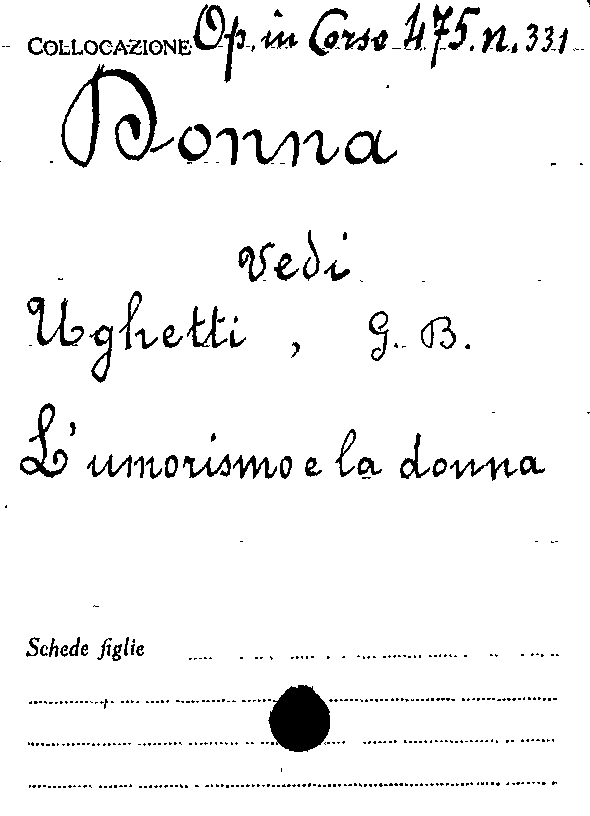 COLLOCAZIONE Op. in Corso 475. n. 331
Donna
vedi
Ughetti, G. B.
L'umorismo e la donna
Schede figlie